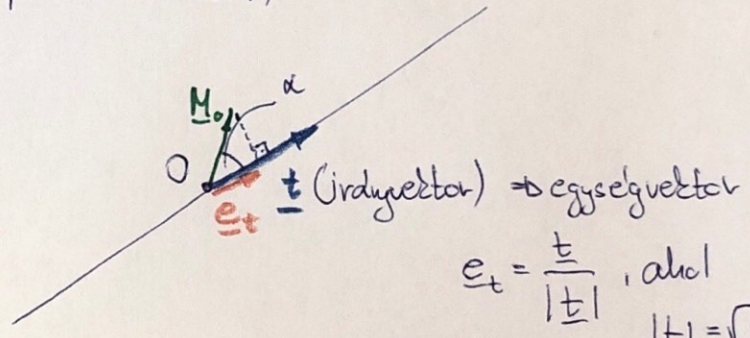 α
M₀
O
t (irányvektor) ⇒ egységvektor
eₜ
eₜ = t / |t| , ahol
|t| = √